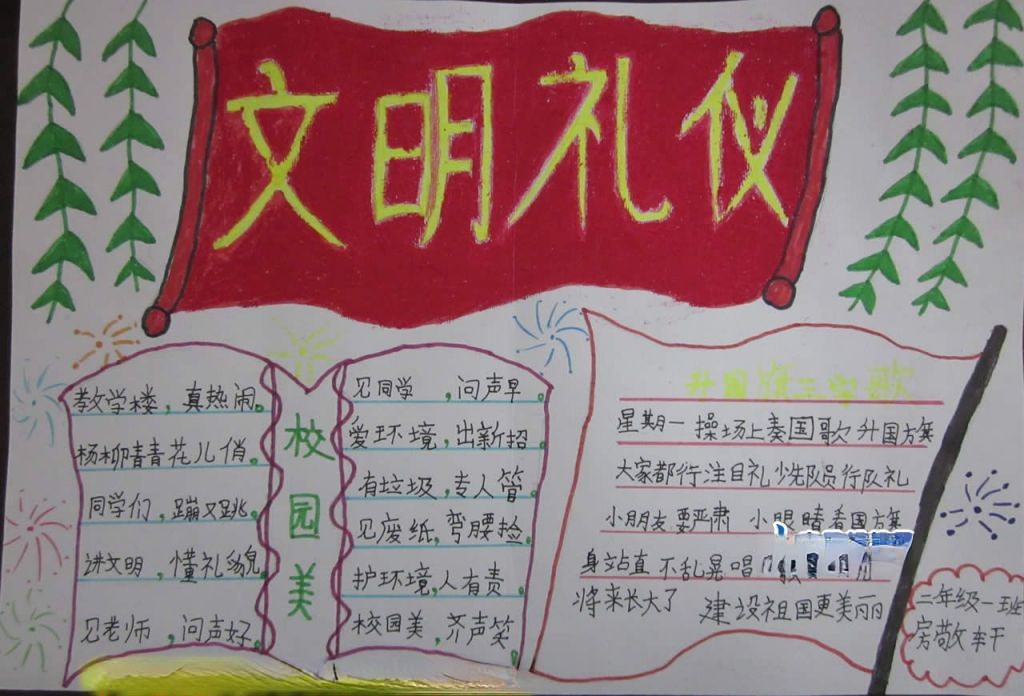 文明礼仪
教学楼，真热闹。
杨柳青青花儿俏。
同学们，蹦又跳，
讲文明，懂礼貌
见老师，问声好。
校园美
见同学，问声早。
爱环境，出新招。
有垃圾，专人管。
见废纸，弯腰捡。
护环境，人有责。
校园美，齐声笑。
升国旗三字歌
星期一操场上奏国歌升国旗
大家都行注目礼少先队员行队礼
小朋友要严肃 小眼睛看国旗
身立直不乱晃唱
将来长大了 建设祖国更美丽
二年级一班
房敬轩